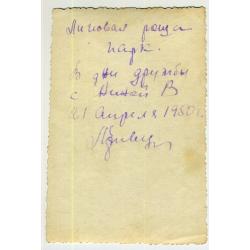 Липовая роща
парк.
В дни дружбы
с Ниной В
21 апреля 1950 г.